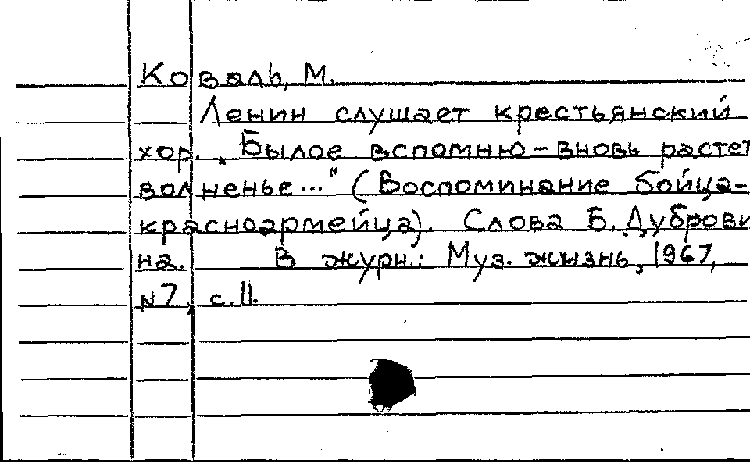 Коваль, М.
Ленин слушает крестьянский
хор. „Былое вспомню – вновь растет
волненье..." (Воспоминание бойца-
красноармейца). Слова Б. Дуброви
на. В журн.: Муз. жизнь, 1967,
№7, с.11.